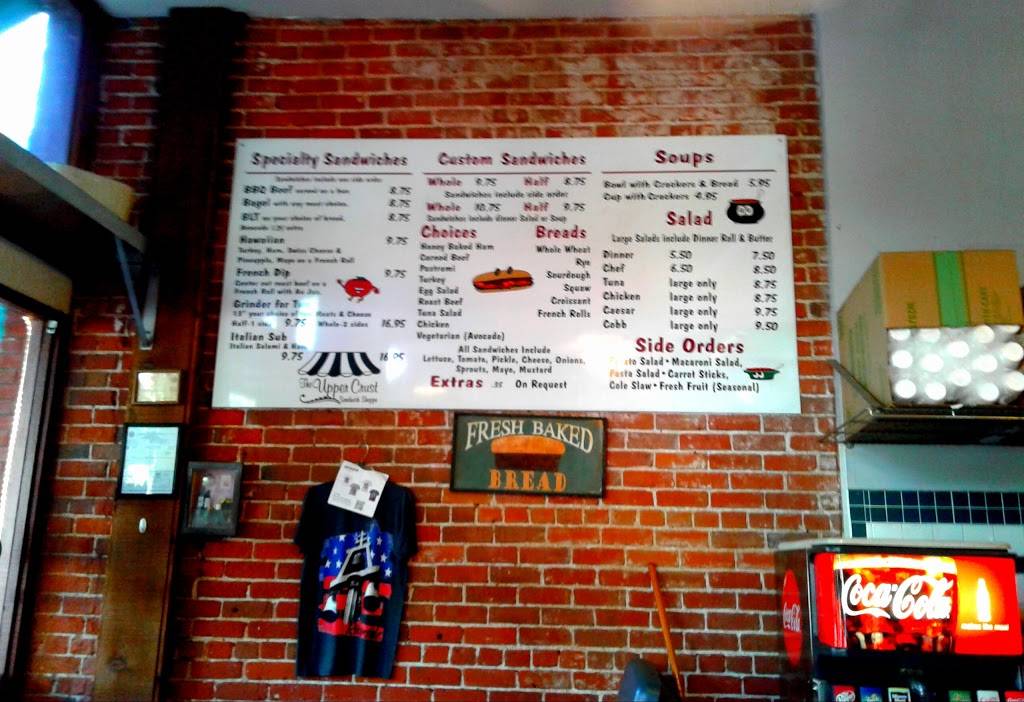 Specialty Sandwiches
Sandwiches include one side order
BBQ Beef served on a bun 8.75
Bagel with any meat choice. 8.75
BLT on your choice of bread. 8.75
Avocado 1.25 extra
Hawaiian 9.75
Turkey, Ham, Swiss Cheese &
Pineapple, Mayo on a French Roll
French Dip 9.75
Center cut roast beef on a
French Roll with Au Jus.
Grinder for
15" your choice of Meats & Cheese
Half-1 9.75 Whole-2 sides 16.95
Italian Sub
Italian Salami &
9.75
The Upper Crust
Sandwich Shoppe
Custom Sandwiches
Whole 9.75 Half 8.75
Sandwiches include side order
Whole 10.75 Half 9.75
Sandwiches include dinner Salad or Soup
Choices
Honey Baked Ham
Corned Beef
Pastrami
Turkey
Egg Salad
Roast Beef
Tuna Salad
Chicken
Vegetarian (Avocado)
Breads
Whole Wheat
Rye
Sourdough
Squaw
Croissant
French Rolls
All Sandwiches Include
Lettuce, Tomato, Pickle, Cheese, Onions,
Sprouts, Mayo, Mustard
Extras .35 On Request
Soups
Bowl with Crackers & Bread 5.95
Cup with Crackers 4.95
Salad
Large Salads include Dinner Roll & Butter
Dinner 5.50 7.50
Chef 6.50 8.50
Tuna large only 8.75
Chicken large only 8.75
Caesar large only 9.75
Cobb large only 9.50
Side Orders
Potato Salad • Macaroni Salad,
Pasta Salad • Carrot Sticks,
Cole Slaw • Fresh Fruit (Seasonal)
FRESH BAKED
BREAD
Coca-Cola
Coca-Cola